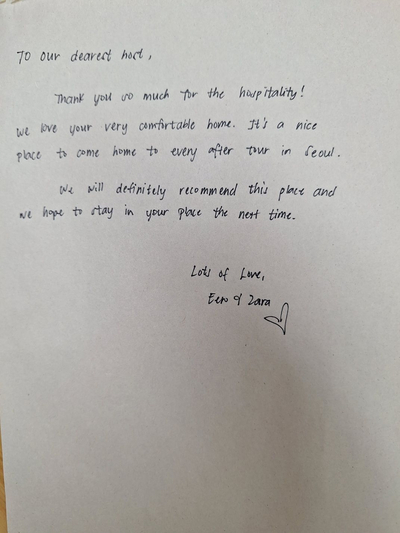 To our dearest host,
Thank you so much for the hospitality!
We love your very comfortable home. It's a nice
place to come home to every after tour in Seoul.
We will definitely recommend this place and
we hope to stay in your place the next time.
Lots of Love,
& Zara